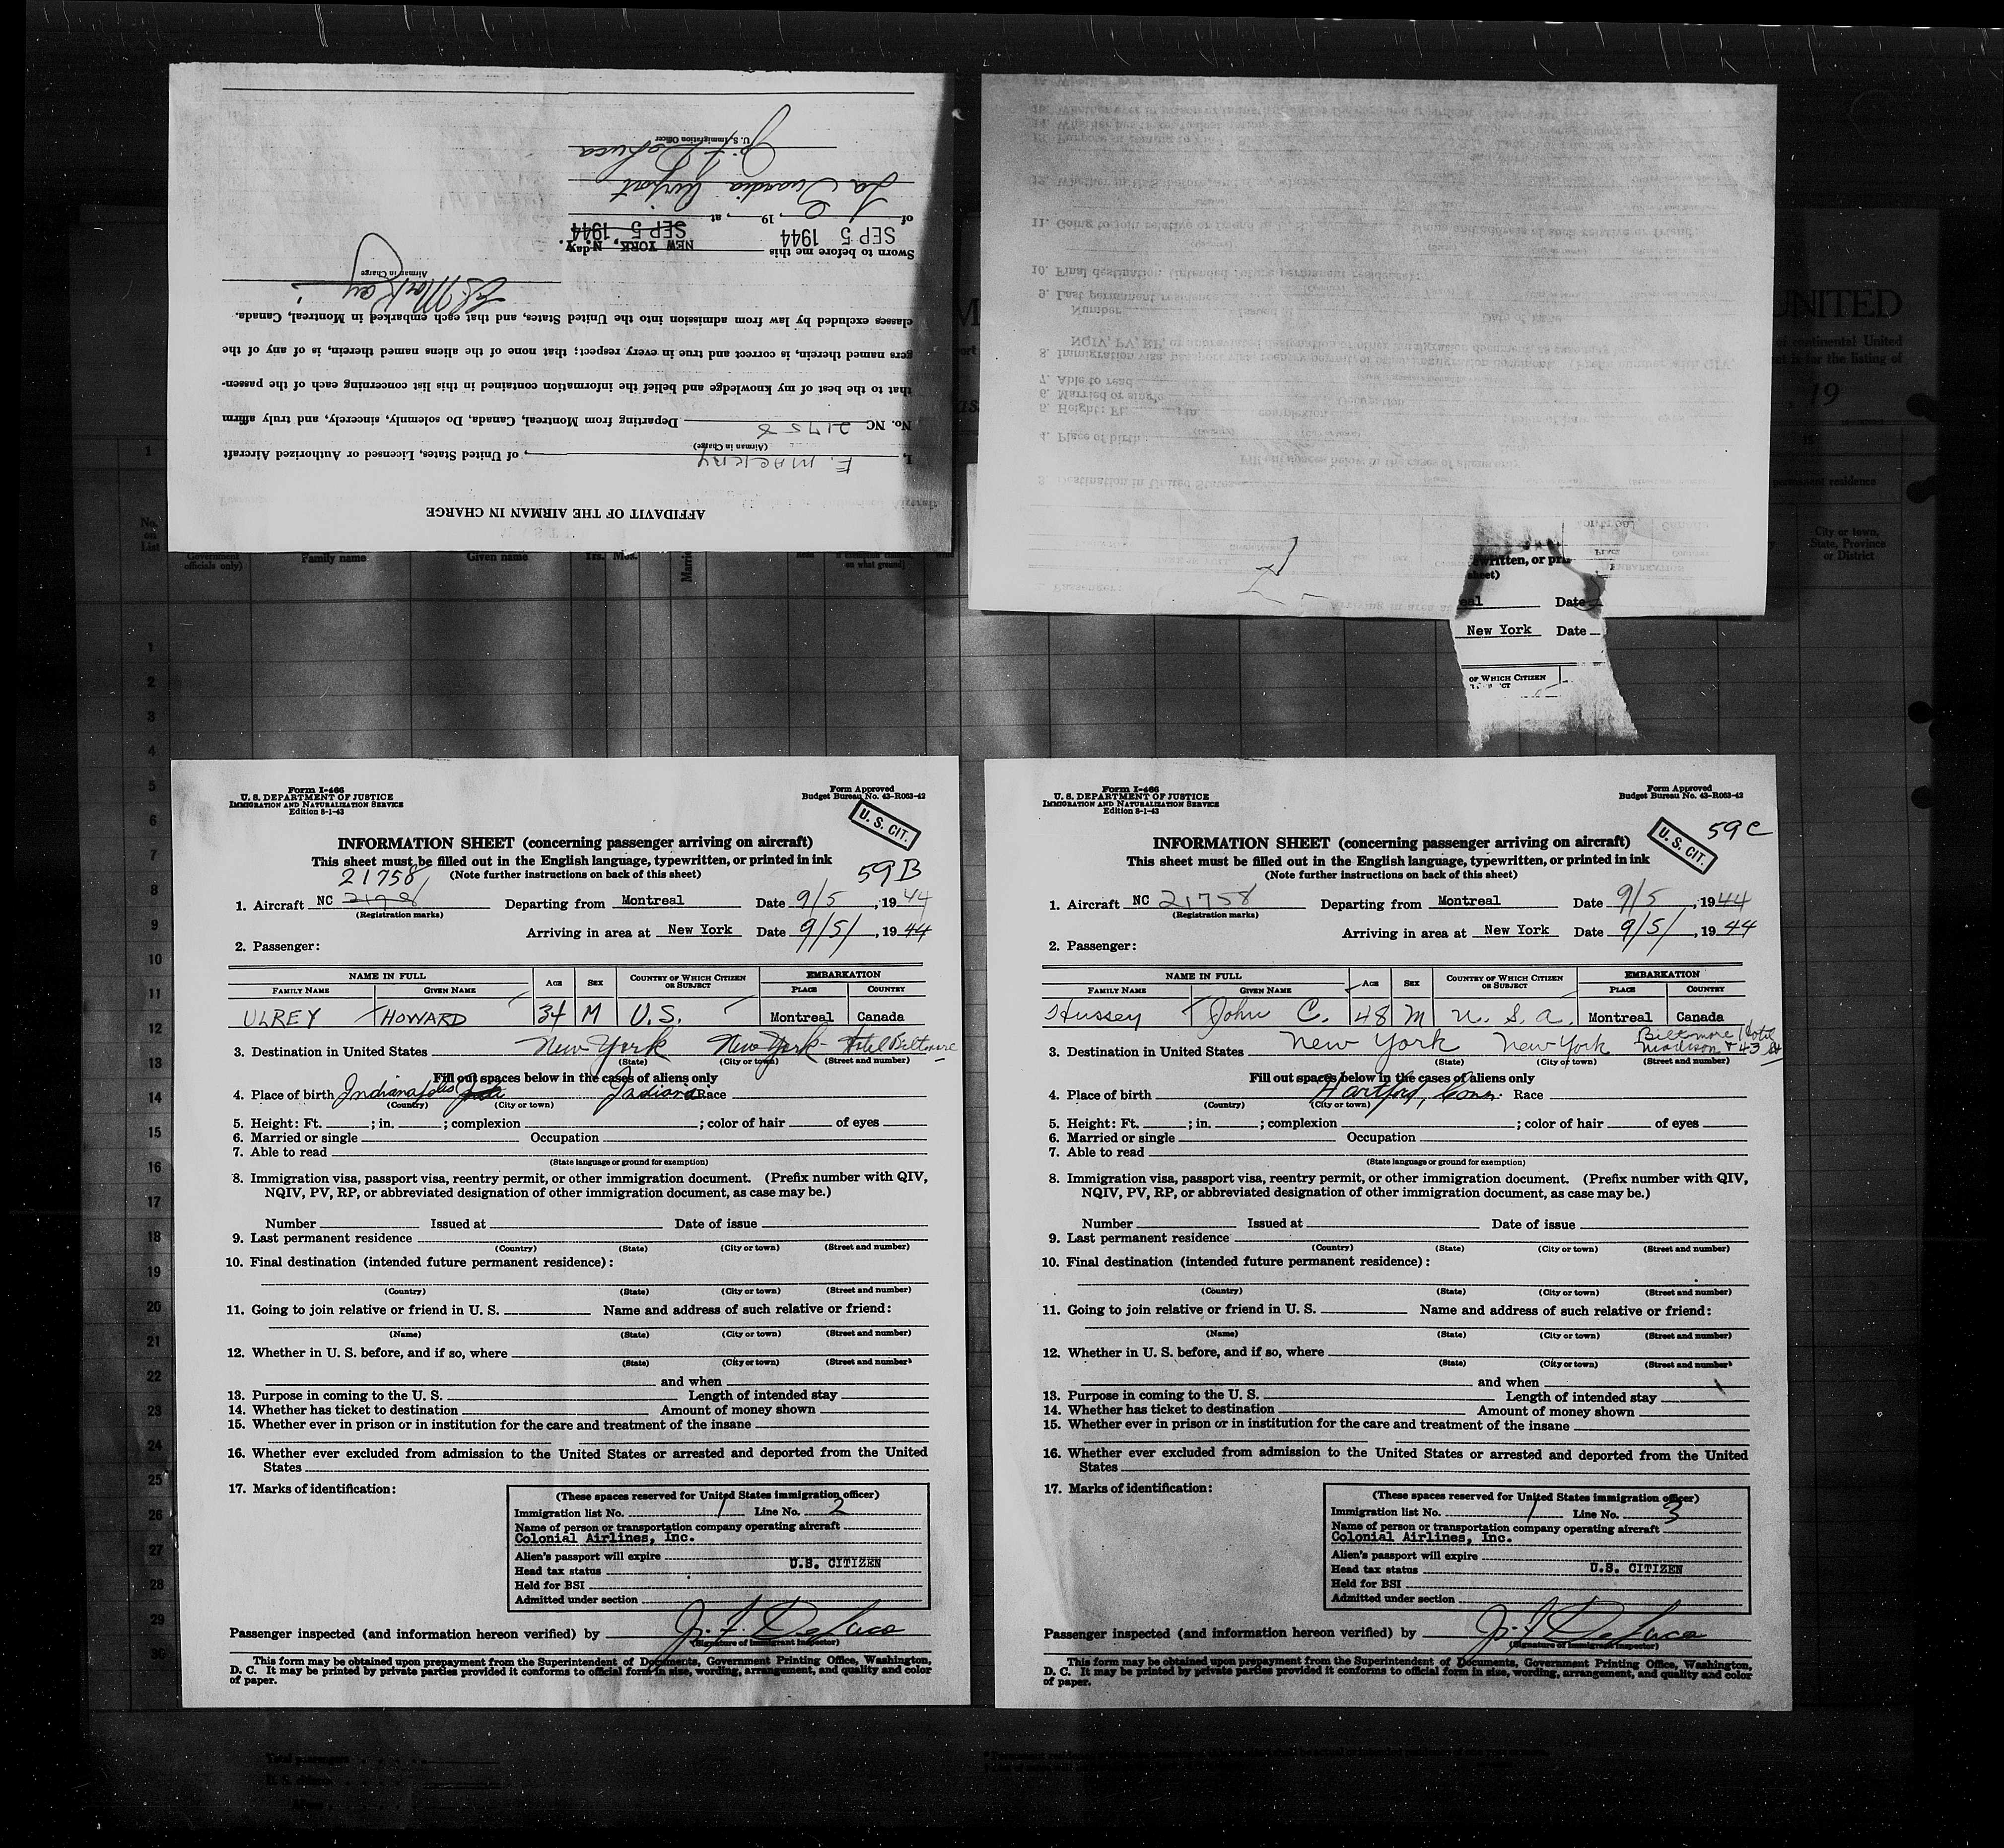 AFFIDAVIT OF THE AIRMAN IN CHARGE
I, E. MACKAY, of United States, Licensed or Authorized Aircraft
(Airman in Charge)
No. NC 21758 Departing from Montreal, Canada, Do solemnly, sincerely, and truly affirm
that to the best of my knowledge and belief the information contained in this list concerning each of the passen-
gers named therein, is correct and true in every respect; that none of the aliens named therein, is of any of the
classes excluded by law from admission into the United States, and that each embarked in Montreal, Canada.
Airman in Charge
Sworn to before me this NEW YORK, N.Y. day
SEP 5 1944 SEP 5 1944
of , 19 , at
La Guardia Airport
U. S. Immigration Officer
written, or pri
sheet)
eal Date
New York Date
OF WHICH CITIZEN
UNITED
of continental United
is for the listing of
19
permanent residence
No. on List
Government officials only)
Family name
Given name
Yrs. Mos.
on what ground)
City or town, State, Province or District
Form I-466
U. S. DEPARTMENT OF JUSTICE
IMMIGRATION AND NATURALIZATION SERVICE
Edition 8-1-43
Form Approved
Budget Bureau No. 43-R063-42
U. S. CIT.
INFORMATION SHEET (concerning passenger arriving on aircraft)
This sheet must be filled out in the English language, typewritten, or printed in ink
21758 (Note further instructions on back of this sheet) 59B
1. Aircraft NC Departing from Montreal Date 9/5, 1944
(Registration marks)
Arriving in area at New York Date 9/5/, 1944
2. Passenger:
NAME IN FULL AGE SEX COUNTRY OF WHICH CITIZEN OR SUBJECT EMBARKATION
FAMILY NAME GIVEN NAME PLACE COUNTRY
ULREY HOWARD 34 M U.S. Montreal Canada
3. Destination in United States New York New York - Hotel Biltmore
(State) (City or town) (Street and number)
Fill out spaces below in the cases of aliens only
4. Place of birth Indianapolis Indiana Race
(Country) (City or town)
5. Height: Ft. ; in. ; complexion ; color of hair of eyes
6. Married or single Occupation
7. Able to read
(State language or ground for exemption)
8. Immigration visa, passport visa, reentry permit, or other immigration document. (Prefix number with QIV,
NQIV, PV, RP, or abbreviated designation of other immigration document, as case may be.)
Number Issued at Date of issue
9. Last permanent residence
(Country) (State) (City or town) (Street and number)
10. Final destination (intended future permanent residence):
(Country) (State) (City or town) (Street and number)
11. Going to join relative or friend in U. S. Name and address of such relative or friend:
(Name) (State) (City or town) (Street and number)
12. Whether in U. S. before, and if so, where
(State) (City or town) (Street and number)
and when
13. Purpose in coming to the U. S. Length of intended stay
14. Whether has ticket to destination Amount of money shown
15. Whether ever in prison or in institution for the care and treatment of the insane
16. Whether ever excluded from admission to the United States or arrested and deported from the United
States
17. Marks of identification:
(These spaces reserved for United States immigration officer)
Immigration list No. 1 Line No. 2
Name of person or transportation company operating aircraft
Colonial Airlines, Inc.
Alien's passport will expire
U.S. CITIZEN
Head tax status
Held for BSI
Admitted under section
Passenger inspected (and information hereon verified) by J. F. DeLuca
(Signature of immigrant inspector)
This form may be obtained upon prepayment from the Superintendent of Documents, Government Printing Office, Washington,
D. C. It may be printed by private parties provided it conforms to official form in size, wording, arrangement, and quality and color
of paper.
Form I-466
U. S. DEPARTMENT OF JUSTICE
IMMIGRATION AND NATURALIZATION SERVICE
Edition 8-1-43
Form Approved
Budget Bureau No. 43-R063-42
U. S. CIT. 59C
INFORMATION SHEET (concerning passenger arriving on aircraft)
This sheet must be filled out in the English language, typewritten, or printed in ink
(Note further instructions on back of this sheet)
1. Aircraft NC 21758 Departing from Montreal Date 9/5, 1944
(Registration marks)
Arriving in area at New York Date 9/5/, 1944
2. Passenger:
NAME IN FULL AGE SEX COUNTRY OF WHICH CITIZEN OR SUBJECT EMBARKATION
FAMILY NAME GIVEN NAME PLACE COUNTRY
Hussey John C. 48 M U. S. A. Montreal Canada
3. Destination in United States New York New York Biltmore Hotel Madison & 43 St
(State) (City or town) (Street and number)
Fill out spaces below in the cases of aliens only
4. Place of birth Hartford, Conn. Race
(Country) (City or town)
5. Height: Ft. ; in. ; complexion ; color of hair of eyes
6. Married or single Occupation
7. Able to read
(State language or ground for exemption)
8. Immigration visa, passport visa, reentry permit, or other immigration document. (Prefix number with QIV,
NQIV, PV, RP, or abbreviated designation of other immigration document, as case may be.)
Number Issued at Date of issue
9. Last permanent residence
(Country) (State) (City or town) (Street and number)
10. Final destination (intended future permanent residence):
(Country) (State) (City or town) (Street and number)
11. Going to join relative or friend in U. S. Name and address of such relative or friend:
(Name) (State) (City or town) (Street and number)
12. Whether in U. S. before, and if so, where
(State) (City or town) (Street and number)
and when
13. Purpose in coming to the U. S. Length of intended stay
14. Whether has ticket to destination Amount of money shown
15. Whether ever in prison or in institution for the care and treatment of the insane
16. Whether ever excluded from admission to the United States or arrested and deported from the United
States
17. Marks of identification:
(These spaces reserved for United States immigration officer)
Immigration list No. 1 Line No. 3
Name of person or transportation company operating aircraft
Colonial Airlines, Inc.
Alien's passport will expire
U.S. CITIZEN
Head tax status
Held for BSI
Admitted under section
Passenger inspected (and information hereon verified) by J. F. DeLuca
(Signature of immigrant inspector)
This form may be obtained upon prepayment from the Superintendent of Documents, Government Printing Office, Washington,
D. C. It may be printed by private parties provided it conforms to official form in size, wording, arrangement, and quality and color
of paper.